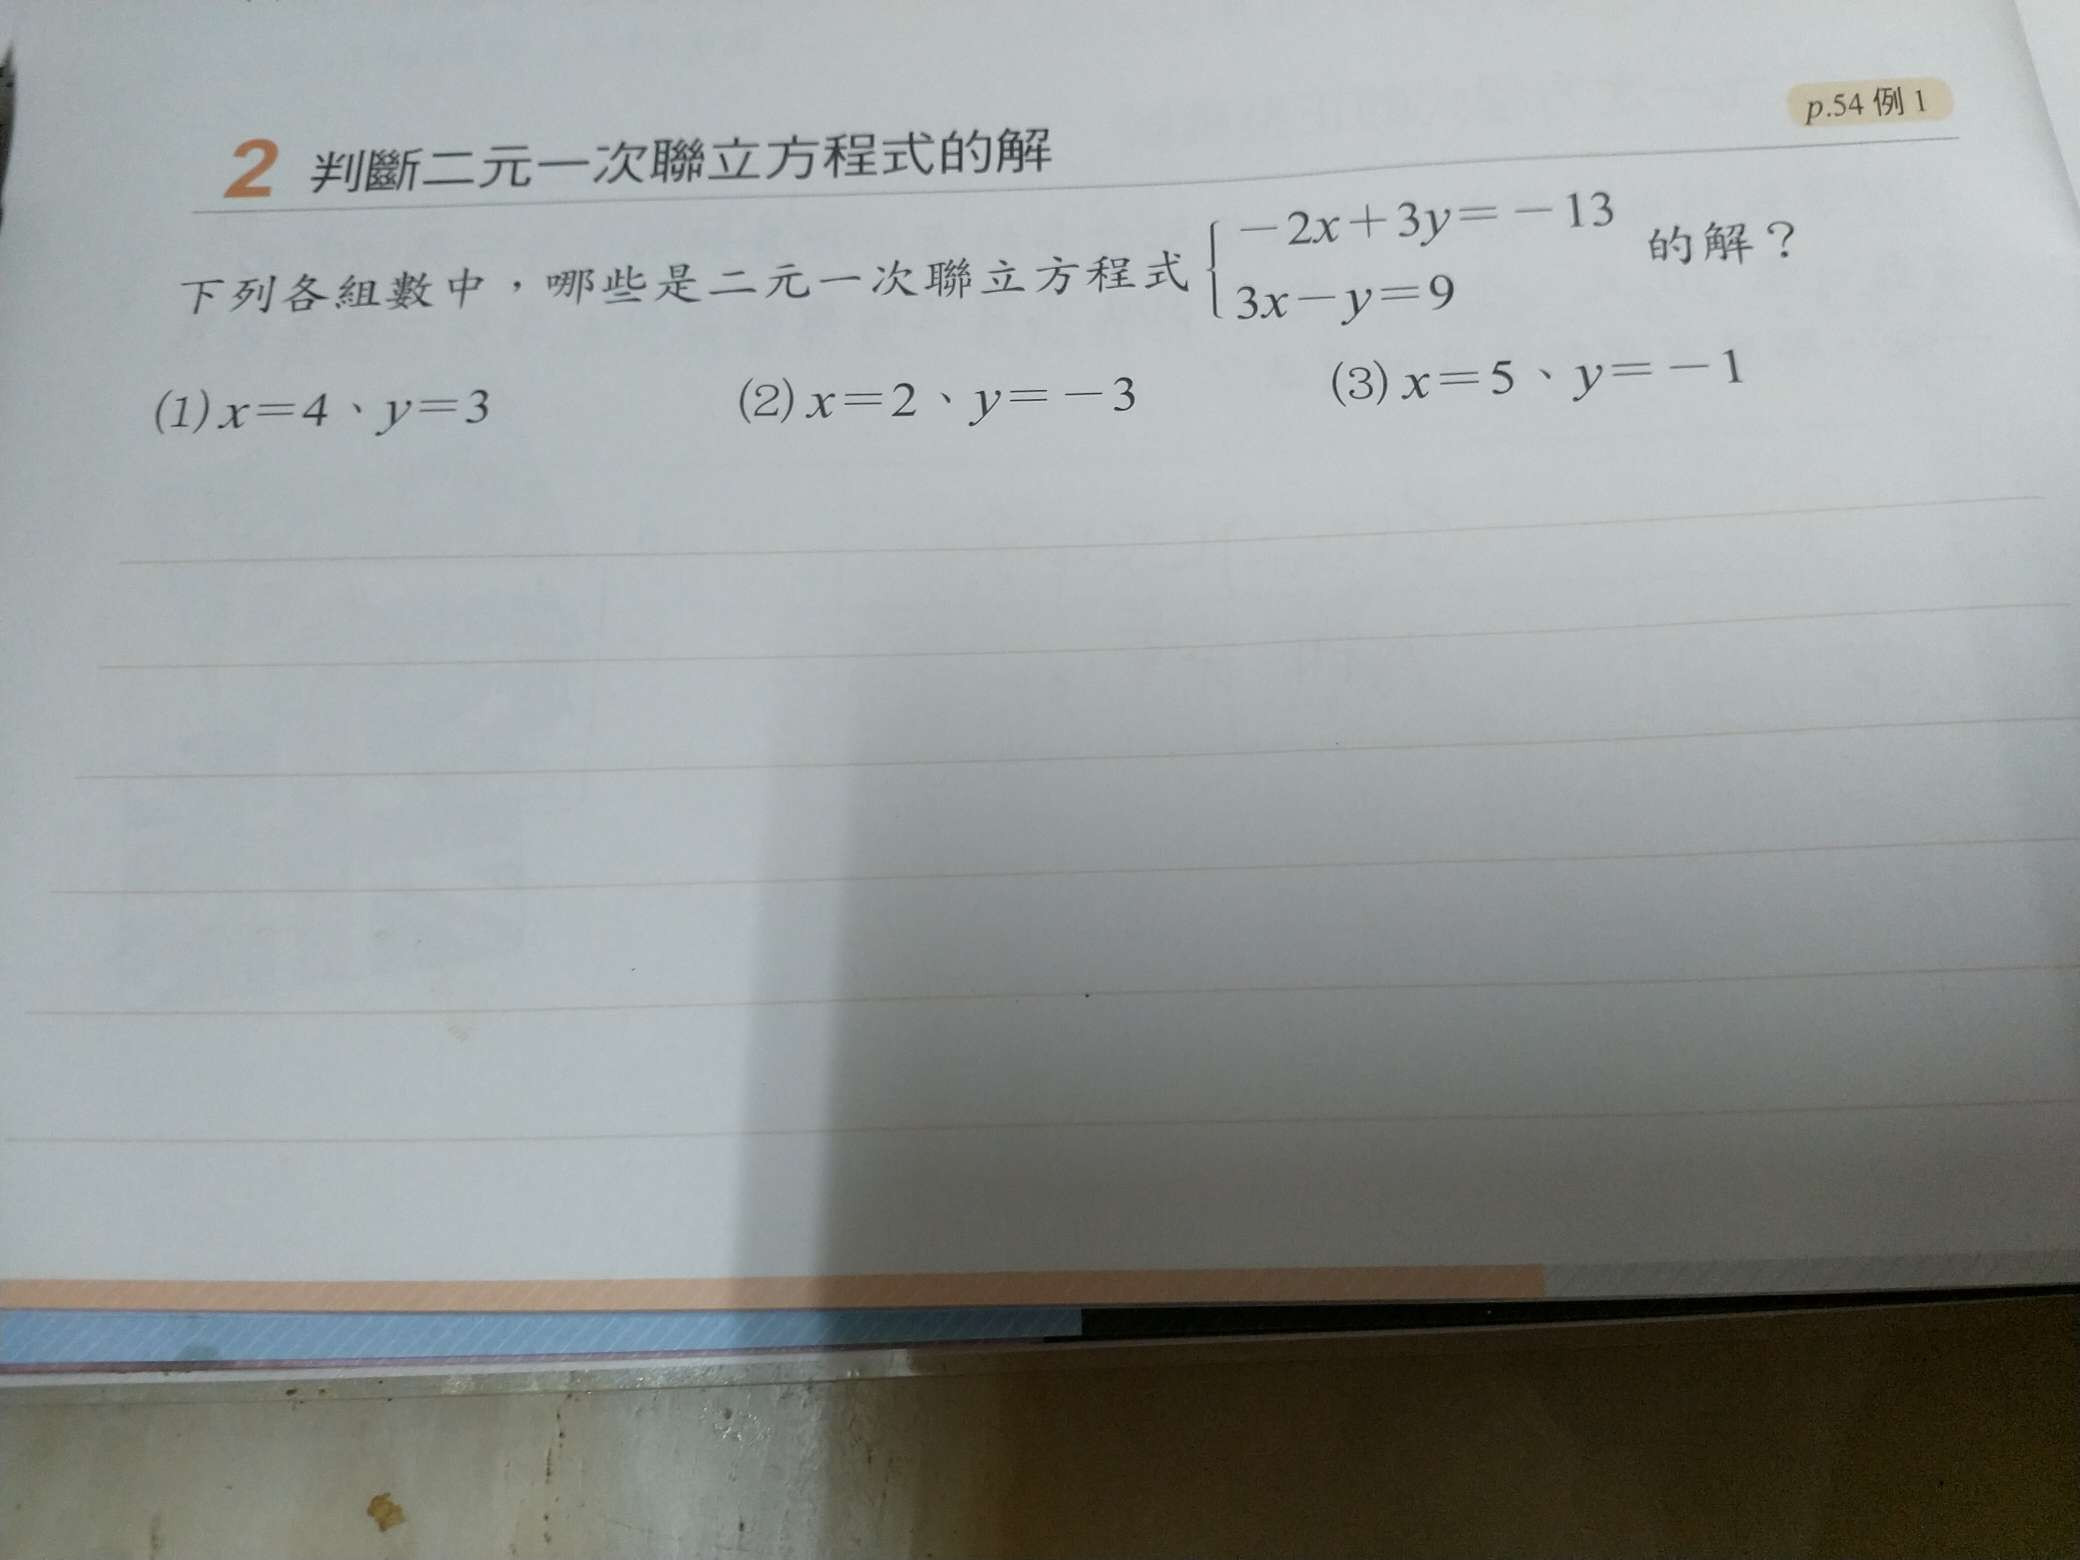 p.54 例 1
2 判斷二元一次聯立方程式的解
下列各組數中，哪些是二元一次聯立方程式 { −2x＋3y＝−13 的解？
3x−y＝9
(1) x＝4、y＝3 (2) x＝2、y＝−3 (3) x＝5、y＝−1